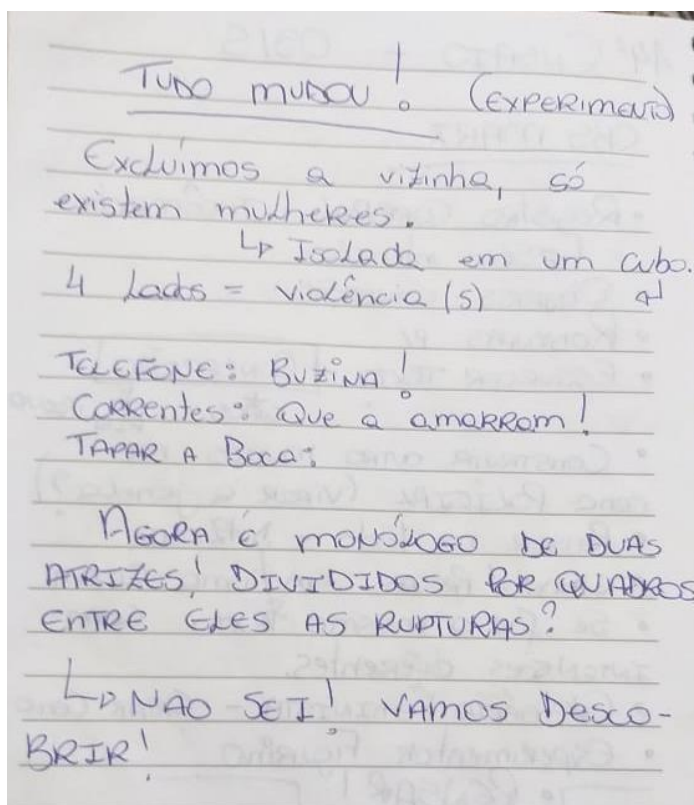 TUDO MUDOU! (EXPERIMENTO)
Excluímos a vizinha, só
existem mulheres.
↳ Isolada em um cubo.
4 Lados = violência (s) ↲
TELEFONE: BUZINA!
Correntes: Que a amarram!
TAPAR A Boca:
AGORA É MONÓLOGO DE DUAS
ATRIZES! DIVIDIDOS POR QUADROS
ENTRE ELES AS RUPTURAS?
↳ NAO SEI! VAMOS DESCO-
BRIR!